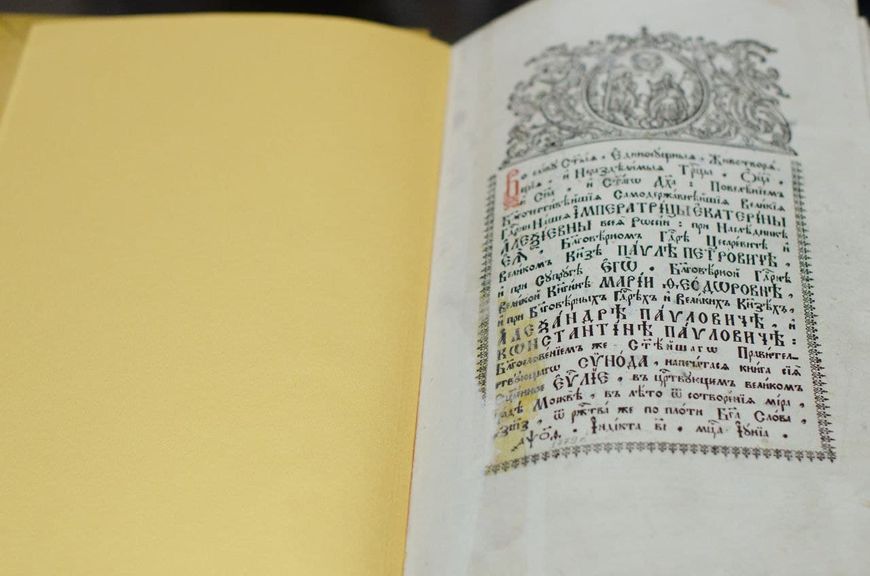 Во славу Ст҃ыѧ, Єдиносꙋщныѧ, Животворѧ-
щїѧ, и Нераздѣлимыѧ Трⷪ҇цы, Оц҃а,
и Сн҃а, и Ст҃агѡ Дх҃а: Повелѣнїемъ
Бл҃гочестивѣйшїѧ Самодержавнѣйшїѧ Великїѧ
Гдⷭ҇рни Нашеѧ ИМПЕРАТРИЦЫ ЕКАТЕРИНЫ
АЛЕѮЇЕВНЫ всеѧ Рѡссїи: при Наслѣдникѣ
ЕѦ, Бл҃говѣрномъ Гдⷭ҇рѣ Цесаревичѣ и
Великомъ Кн҃зѣ ПАѴЛѢ ПЕТРОВИЧѢ,
и при Сꙋпрꙋгѣ ЕГѠ, Бл҃говѣрной Гдⷭ҇рнѣ
Великой Кнѧгинѣ МАРЇИ ѲЕОДѠРОВНѢ,
и при Бл҃говѣрныхъ Гдⷭ҇рѣхъ и Великихъ Кн҃зѣхъ,
АЛЕѮАНДРѢ ПАѴЛОВИЧѢ, и
КѠНСТАНТІНѢ ПАѴЛОВИЧѢ:
Бл҃гословенїемъ же Ст҃ѣйшагѡ Правител-
ствꙋющагѡ СѴНОДА, напечатасѧ книга сїѧ
Сщ҃енное ЕѴⷢ҇ЛЇЕ, въ црⷭ҇твꙋющемъ великомъ
градѣ Москвѣ, въ лѣто ѿ сотворенїѧ мїра,
ѿ ржⷭ҇тва же по плоти Бг҃а Слова
Індїкта вї, мцⷭ҇а Іꙋнїа.